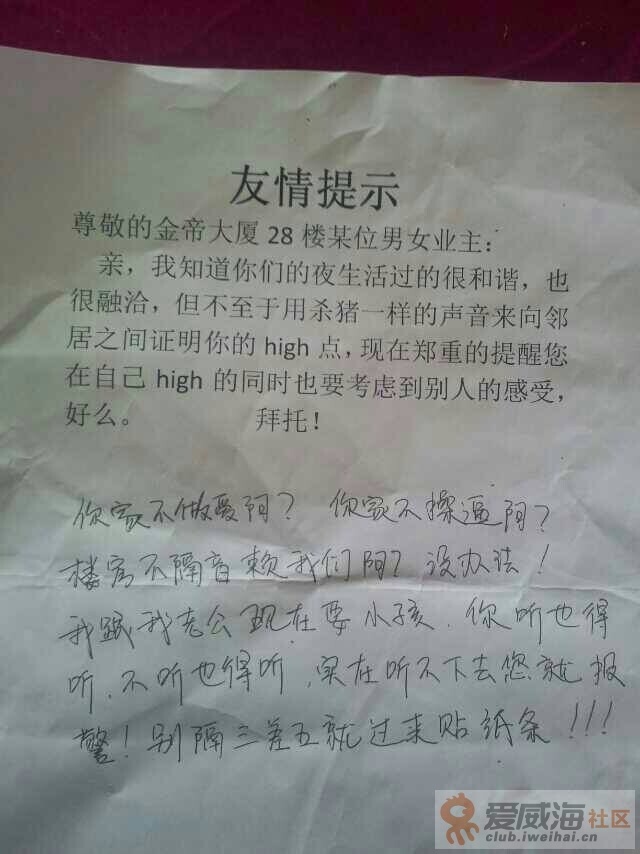 友情提示
尊敬的金帝大厦 28 楼某位男女业主：
亲，我知道你们的夜生活过的很和谐，也
很融洽，但不至于用杀猪一样的声音来向邻
居之间证明你的 high 点，现在郑重的提醒您
在自己 high 的同时也要考虑到别人的感受，
好么。 拜托！
你家不做爱阿？ 你家不操逼阿？
楼房不隔音赖我们阿？没办法！
我跟我老公现在要小孩．你听也得
听．不听也得听．实在听不下去您就报
警！别隔三差五就过来贴纸条！！！
爱威海社区
club.iweihai.cn